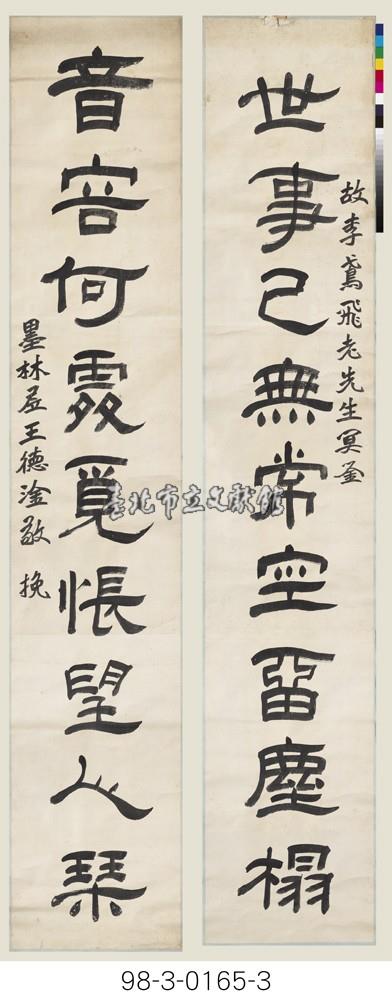 故李鳶飛老先生冥鉴
世事已無常空留塵榻
音容何處覓悵望人琴
墨林居王德淦敬 挽
臺北市立文獻館
98-3-0165-3